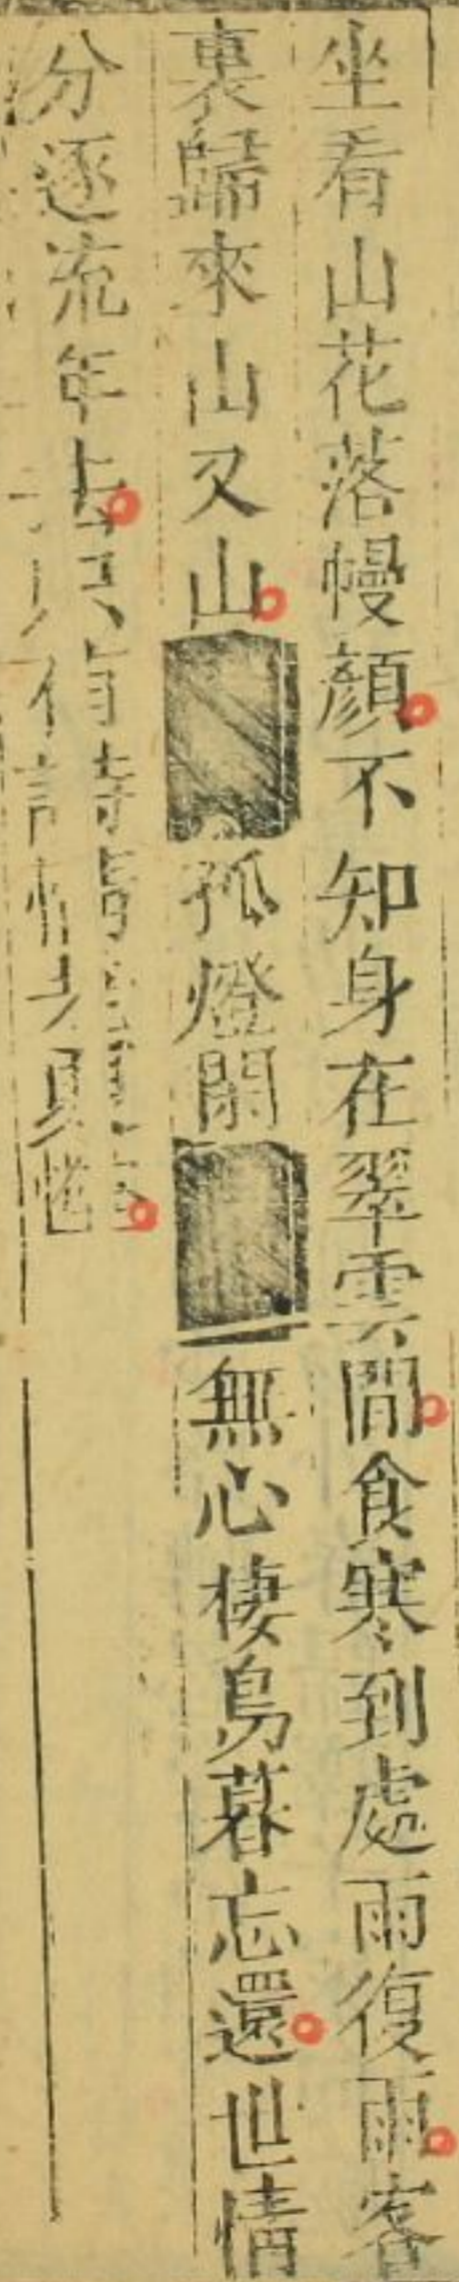 坐看山花落幔顏不知身在翠雲間食寒到處雨復雨客
裏歸來山又山孤燈閉無心棲鳥暮忘還世情
分逐流年去只有